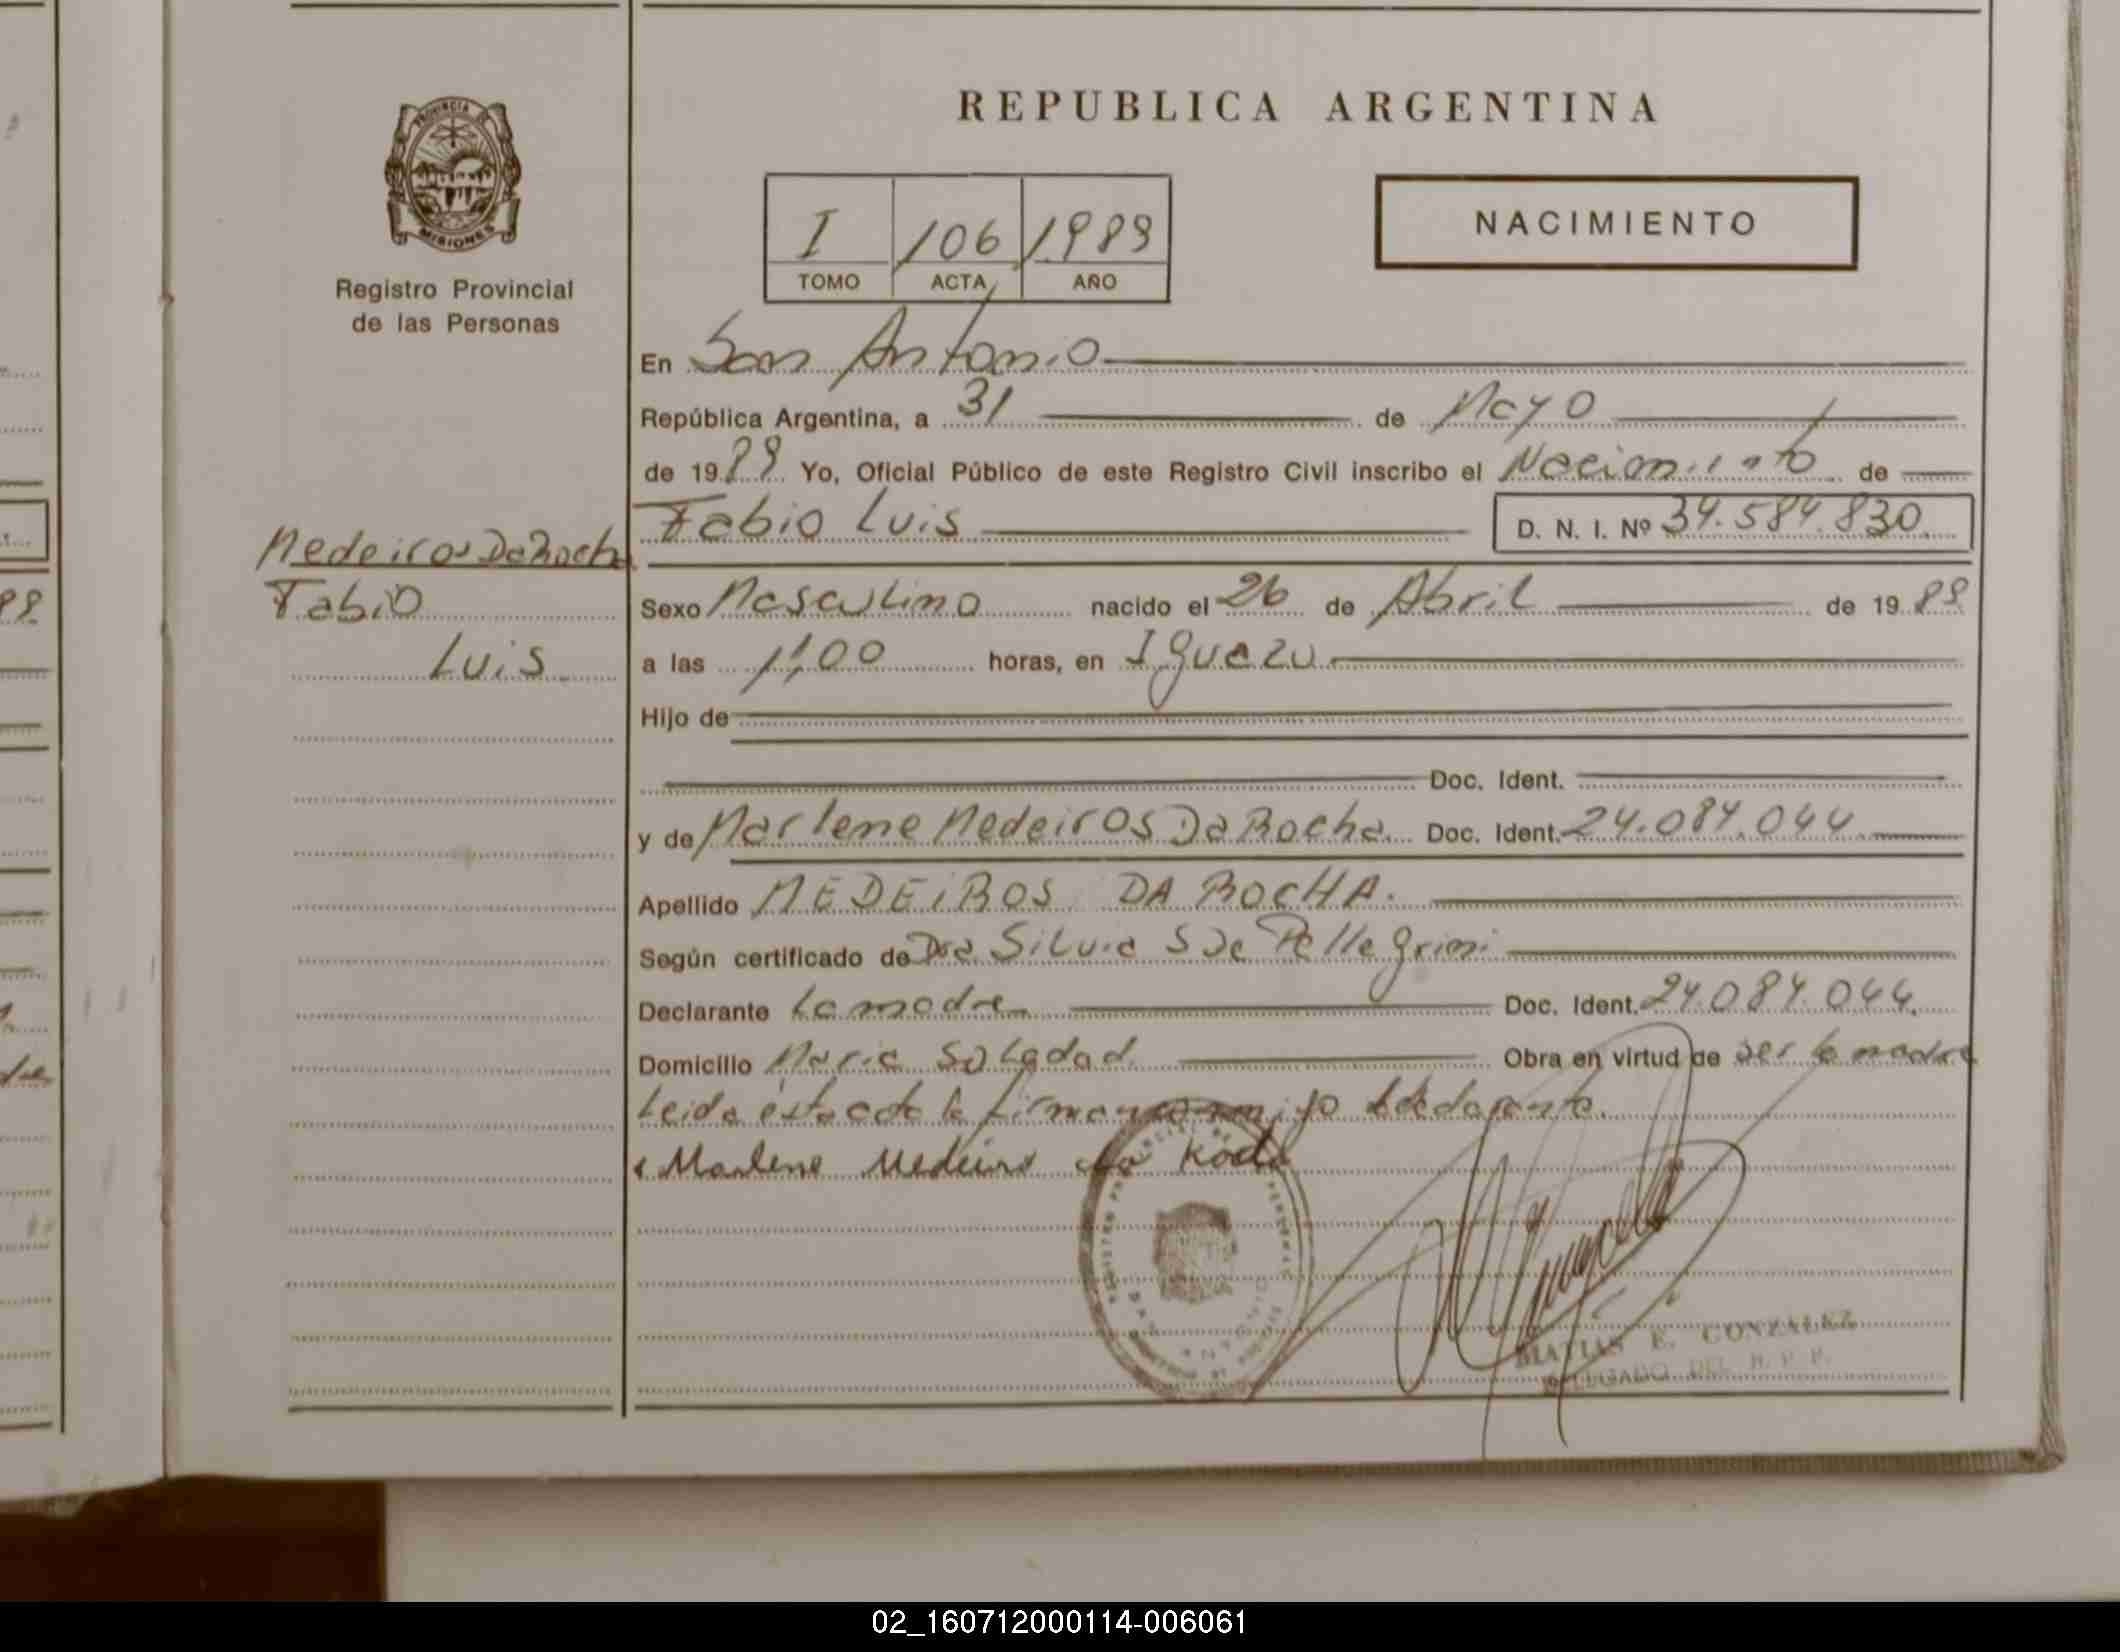 PROVINCIA DE
MISIONES
Registro Provincial
de las Personas
REPUBLICA ARGENTINA
I 106 1989
TOMO ACTA AÑO
NACIMIENTO
En San Antonio
República Argentina, a 31 de Mayo
de 1989 Yo, Oficial Público de este Registro Civil inscribo el Nacimiento de
Fabio Luis D. N. I. Nº 34.584.830
Medeiros Da Rocha
Fabio
Luis
Sexo Masculino nacido el 26 de Abril de 1989
a las 11,00 horas, en Iguazu
Hijo de
Doc. Ident.
y de Marlene Medeiros Da Rocha Doc. Ident. 24.084.044
Apellido MEDEiROS DA ROCHA.
Según certificado de Dra Silvia S de Pellegrini
Declarante La madre Doc. Ident. 24.084.044.
Domicilio Maria Soledad Obra en virtud de ser la madre
Leida ésta acta la firma conmigo
Marlene Medeiros da Rocha
MATIAS E. GONZALEZ
DELEGADO DEL R. P. P.
02_160712000114-006061